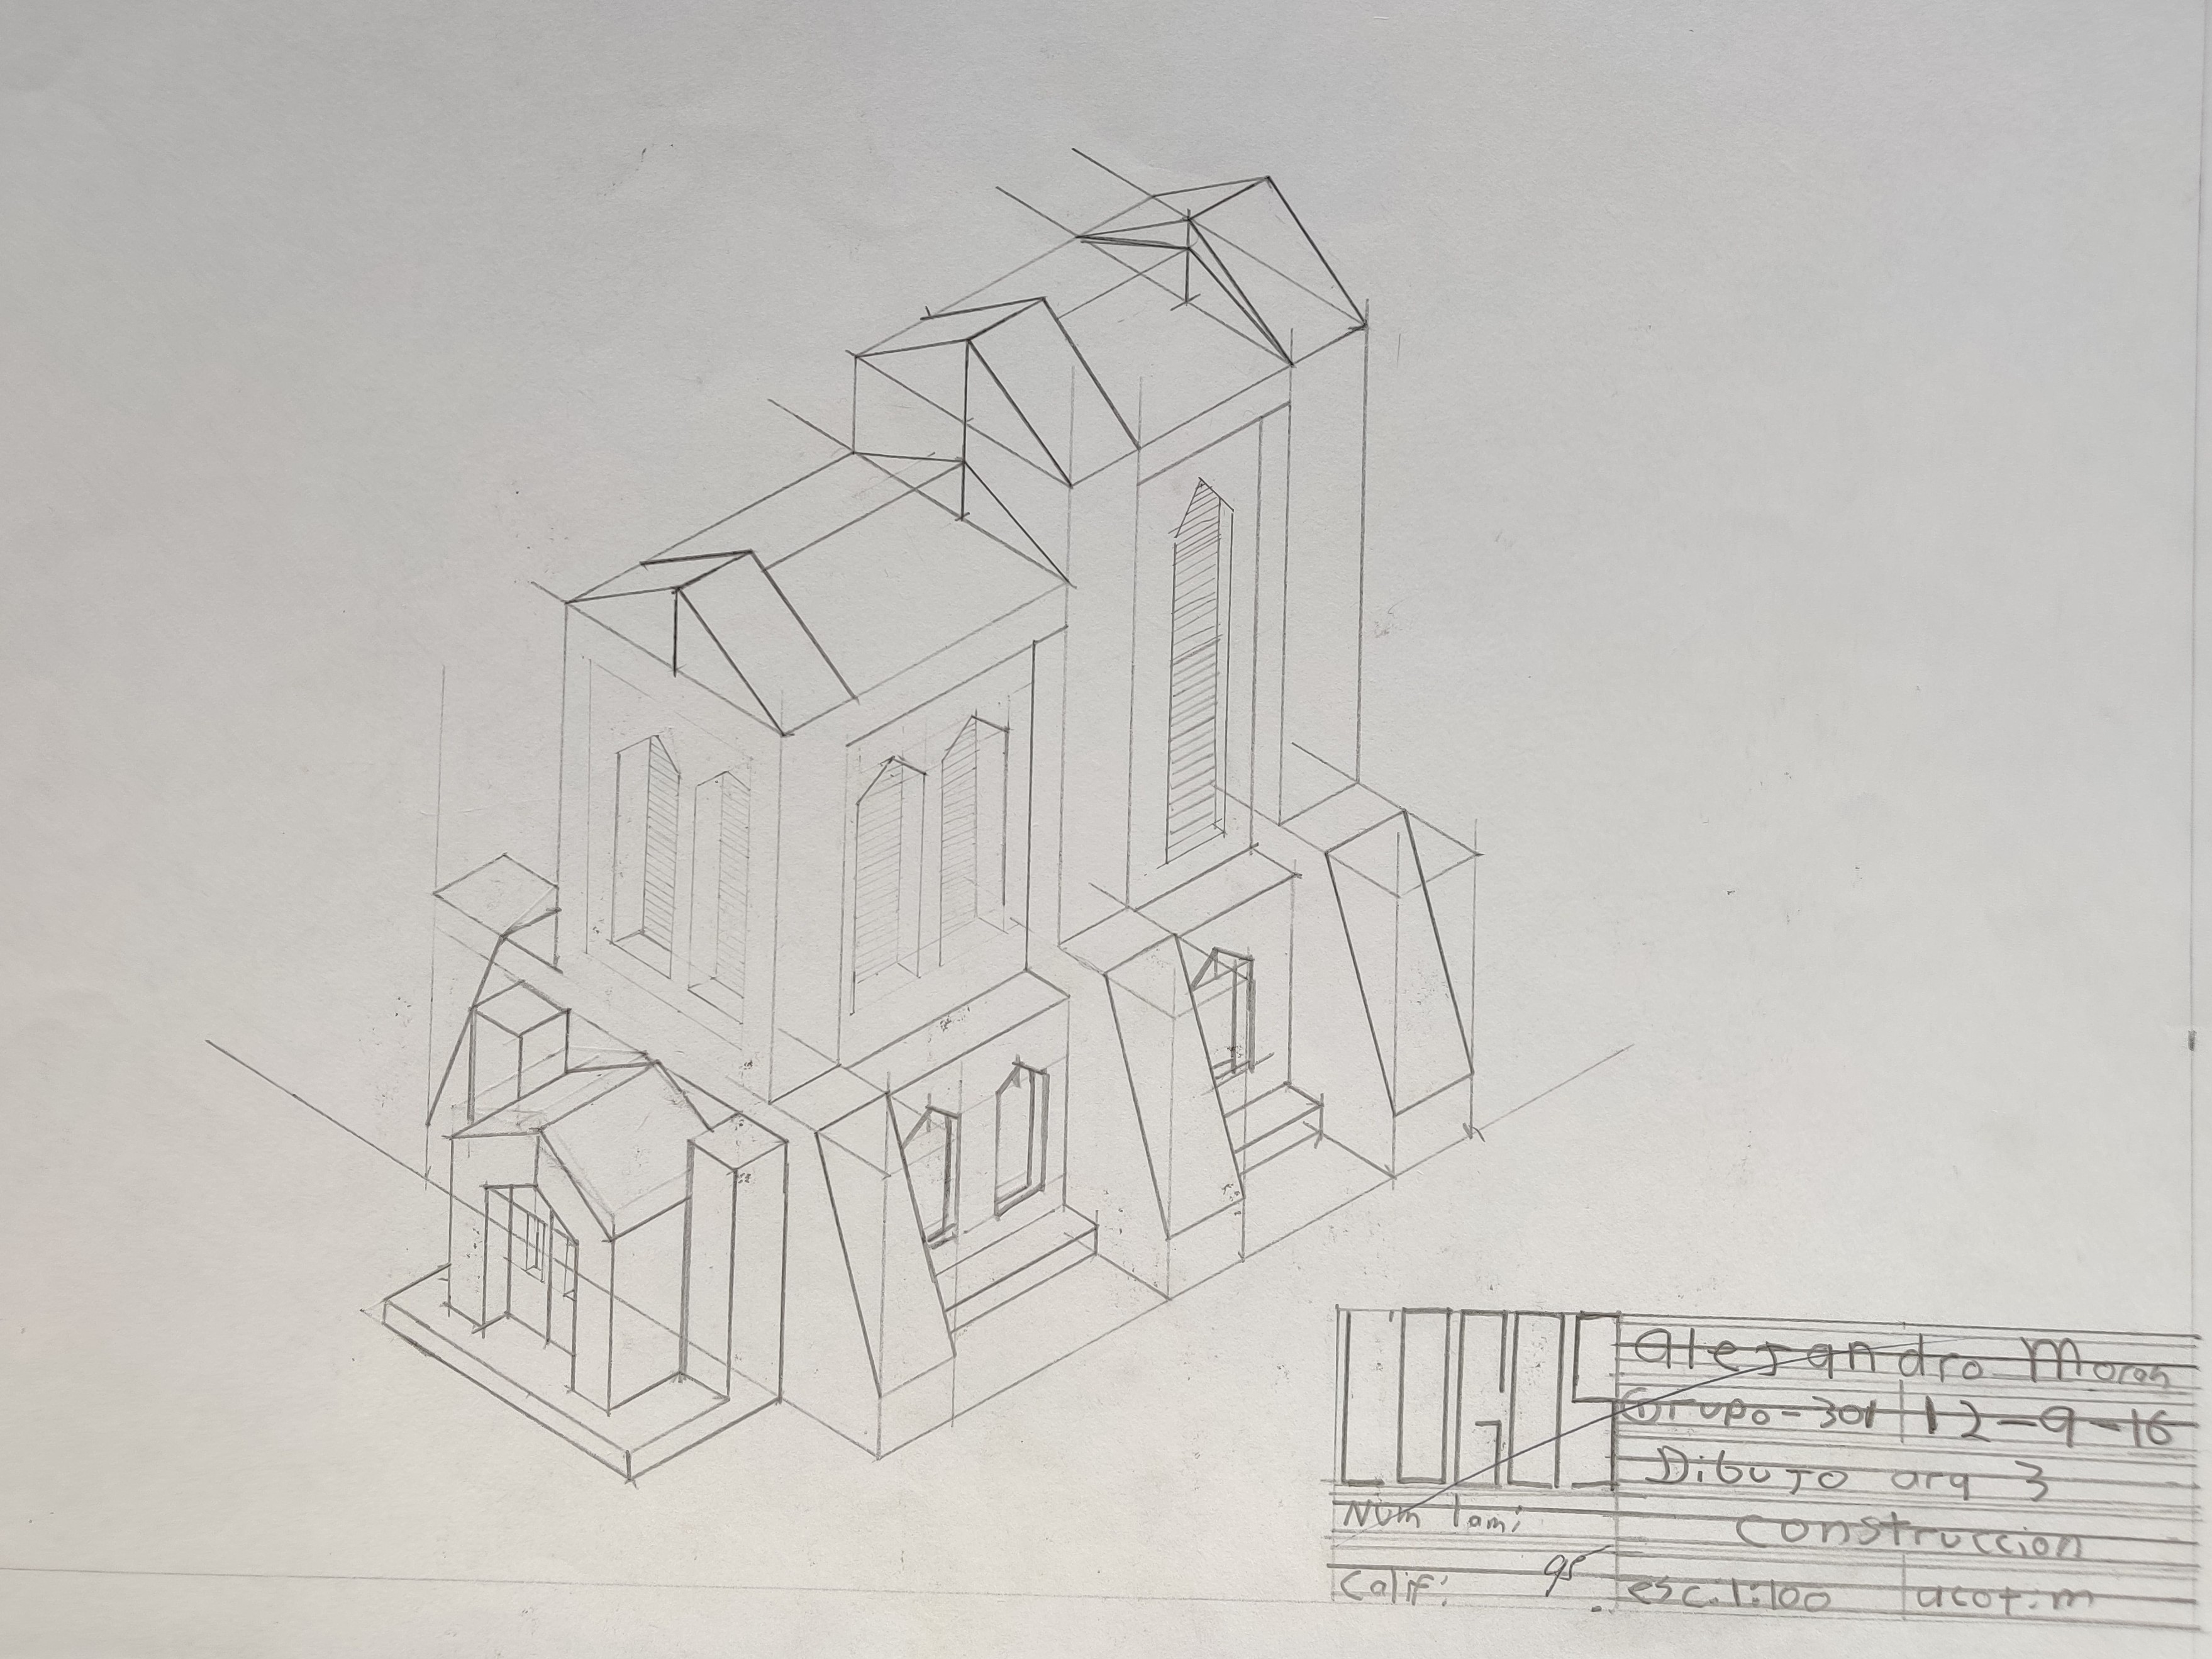 Alejandro Moran
Grupo-301 12-9-16
Dibujo arq 3
Num lam:
Construccion
Calif: 95 esc.1:100 acot:m